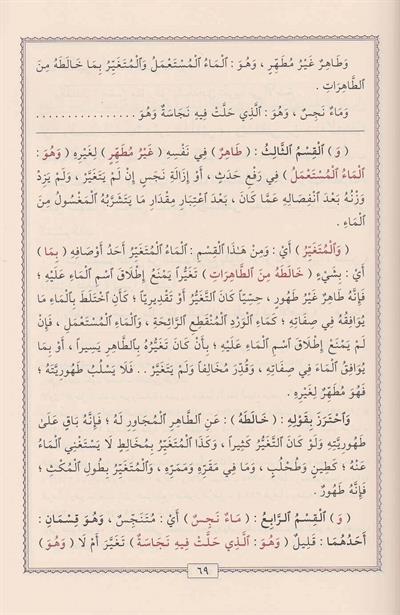 وَطَاهِرٌ غَيْرُ مُطَهِّرٍ ، وَهُوَ : ٱلْمَاءُ ٱلْمُسْتَعْمَلُ وَٱلْمُتَغَيِّرُ بِمَا خَالَطَهُ مِنَ
ٱلطَّاهِرَاتِ .
وَمَاءٌ نَجِسٌ ، وَهُوَ : ٱلَّذِي حَلَّتْ فِيهِ نَجَاسَةٌ وَهُوَ . . . . . . . . . . . . . . . .
( وَ ) ٱلْقِسْمُ ٱلثَّالِثُ : ( طَاهِرٌ ) فِي نَفْسِهِ ( غَيْرُ مُطَهِّرٍ ) لِغَيْرِهِ ( وَهُوَ :
ٱلْمَاءُ ٱلْمُسْتَعْمَلُ ) فِي رَفْعِ حَدَثٍ ، أَوْ إِزَالَةِ نَجَسٍ إِنْ لَمْ يَتَغَيَّرْ ، وَلَمْ يَزِدْ
وَزْنُهُ بَعْدَ ٱنْفِصَالِهِ عَمَّا كَانَ ، بَعْدَ ٱعْتِبَارِ مِقْدَارِ مَا يَتَشَرَّبُهُ ٱلْمَغْسُولُ مِنَ
ٱلْمَاءِ .
( وَٱلْمُتَغَيِّرُ ) أَيْ : وَمِنْ هَـٰذَا ٱلْقِسْمِ : ٱلْمَاءُ ٱلْمُتَغَيِّرُ أَحَدُ أَوْصَافِهِ ( بِمَا )
أَيْ : بِشَيْءٍ ( خَالَطَهُ مِنَ ٱلطَّاهِرَاتِ ) تَغَيُّراً يَمْنَعُ إِطْلَاقَ ٱسْمِ ٱلْمَاءِ عَلَيْهِ ؛
فَإِنَّهُ طَاهِرٌ غَيْرُ طَهُورٍ ، حِسِّيّاً كَانَ ٱلتَّغَيُّرُ أَوْ تَقْدِيرِيّاً ؛ كَأَنِ ٱخْتَلَطَ بِٱلْمَاءِ مَا
يُوَافِقُهُ فِي صِفَاتِهِ ؛ كَمَاءِ ٱلْوَرْدِ ٱلْمُنْقَطِعِ ٱلرَّائِحَةِ ، وَٱلْمَاءِ ٱلْمُسْتَعْمَلِ ، فَإِنْ
لَمْ يَمْنَعْ إِطْلَاقَ ٱسْمِ ٱلْمَاءِ عَلَيْهِ ؛ بِأَنْ كَانَ تَغَيُّرُهُ بِٱلطَّاهِرِ يَسِيراً ، أَوْ بِمَا
يُوَافِقُ ٱلْمَاءَ فِي صِفَاتِهِ ، وَقُدِّرَ مُخَالِفاً وَلَمْ يَتَغَيَّرْ . . فَلَا يَسْلُبُ طَهُورِيَّتَهُ ؛
فَهُوَ مُطَهِّرٌ لِغَيْرِهِ .
وَٱحْتَرَزَ بِقَوْلِهِ : ( خَالَطَهُ ) : عَنِ ٱلطَّاهِرِ ٱلْمُجَاوِرِ لَهُ ؛ فَإِنَّهُ بَاقٍ عَلَىٰ
طَهُورِيَّتِهِ وَلَوْ كَانَ ٱلتَّغَيُّرُ كَثِيراً ، وَكَذَا ٱلْمُتَغَيِّرُ بِمُخَالِطٍ لَا يَسْتَغْنِي ٱلْمَاءُ
عَنْهُ ؛ كَطِينٍ وَطُحْلُبٍ ، وَمَا فِي مَقَرِّهِ وَمَمَرِّهِ ، وَٱلْمُتَغَيِّرُ بِطُولِ ٱلْمُكْثِ ؛
فَإِنَّهُ طَهُورٌ .
( وَ ) ٱلْقِسْمُ ٱلرَّابِعُ : ( مَاءٌ نَجِسٌ ) أَيْ : مُتَنَجِّسٌ ، وَهُوَ قِسْمَانِ :
أَحَدُهُمَا : قَلِيلٌ ( وَهُوَ : ٱلَّذِي حَلَّتْ فِيهِ نَجَاسَةٌ ) تَغَيَّرَ أَمْ لَا ( وَهُوَ )
٦٩